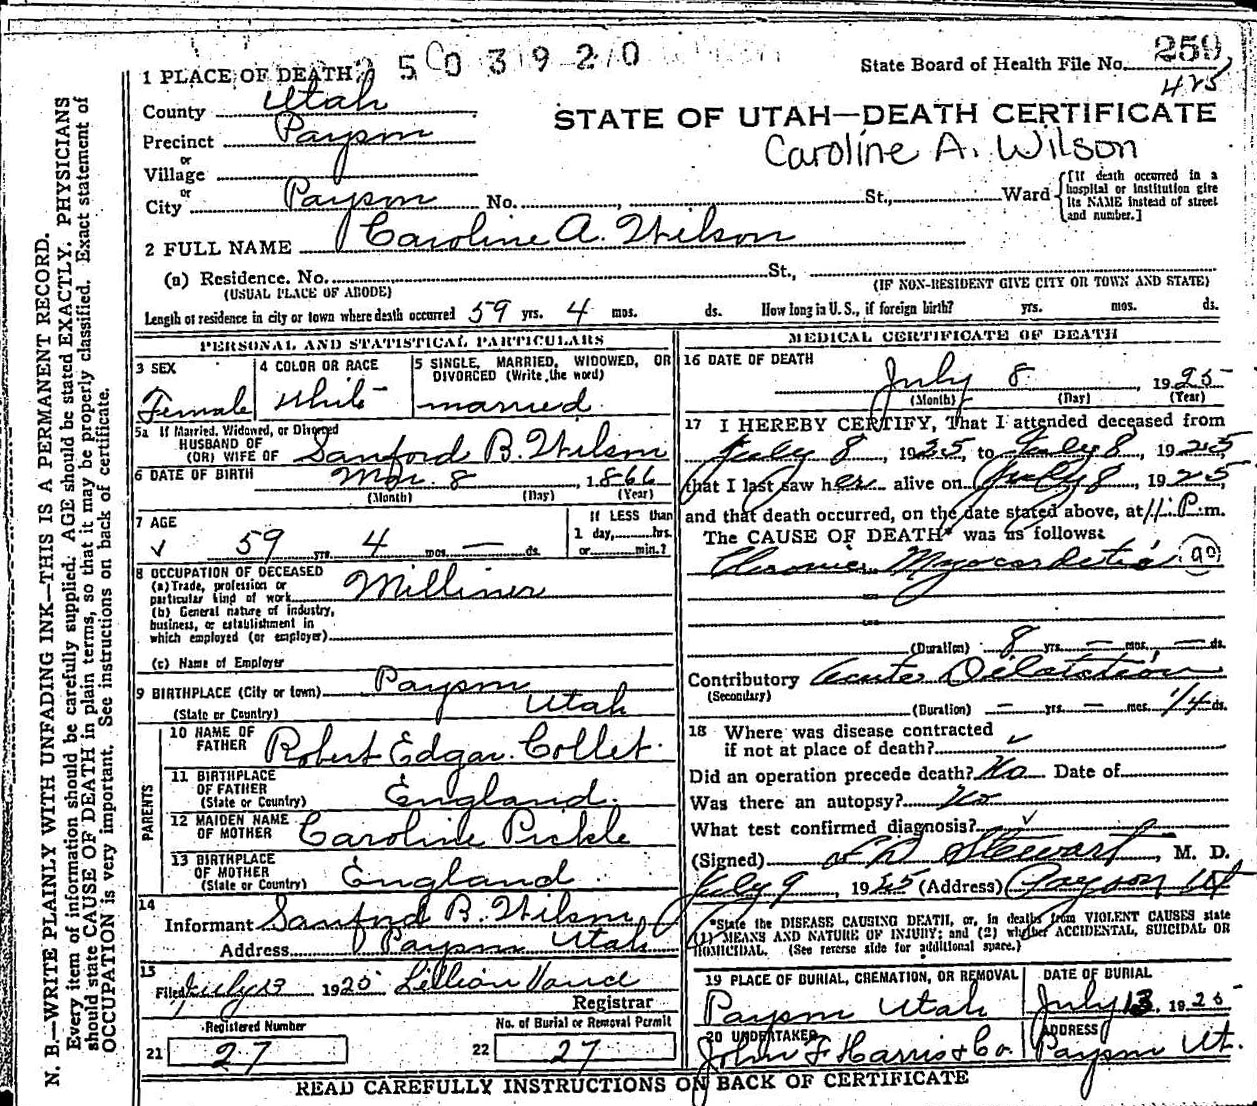 N. B.—WRITE PLAINLY WITH UNFADING INK—THIS IS A PERMANENT RECORD.
Every item of information should be carefully supplied. AGE should be stated EXACTLY. PHYSICIANS
should state CAUSE OF DEATH in plain terms, so that it may be properly classified. Exact statement of
OCCUPATION is very important. See instructions on back of certificate.
2503920
State Board of Health File No. 259
425
1 PLACE OF DEATH
County Utah
STATE OF UTAH—DEATH CERTIFICATE
Precinct Payson
Caroline A. Wilson
or
Village
or
City Payson No. , St., Ward
[If death occurred in a
hospital or institution give
its NAME instead of street
and number.]
2 FULL NAME Caroline A. Wilson
(a) Residence. No. St.,
(USUAL PLACE OF ABODE) (IF NON-RESIDENT GIVE CITY OR TOWN AND STATE)
Length of residence in city or town where death occurred 59 yrs. 4 mos. ds. How long in U. S., if foreign birth? yrs. mos. ds.
PERSONAL AND STATISTICAL PARTICULARS
3 SEX
Female
4 COLOR OR RACE
White
5 SINGLE, MARRIED, WIDOWED, OR
DIVORCED (Write the word)
married
5a If Married, Widowed, or Divorced
HUSBAND OF
(OR) WIFE OF Sanford B. Wilson
6 DATE OF BIRTH Mar. 8, 1866
(Month) (Day) (Year)
7 AGE
59 yrs. 4 mos. — ds.
If LESS than
1 day, hrs.
or min.?
8 OCCUPATION OF DECEASED
(a) Trade, profession or
particular kind of work Milliner
(b) General nature of industry,
business, or establishment in
which employed (or employer)
(c) Name of Employer
9 BIRTHPLACE (City or town) Payson
(State or Country) Utah
PARENTS
10 NAME OF
FATHER Robert Edgar Collet.
11 BIRTHPLACE
OF FATHER
(State or Country) England.
12 MAIDEN NAME
OF MOTHER Caroline Pickle
13 BIRTHPLACE
OF MOTHER
(State or Country) England.
14
Informant Sanford B. Wilson
Address Payson Utah
15
Filed July 13 1925 Lillian
Registrar
Registered Number
21 27
No. of Burial or Removal Permit
22 27
MEDICAL CERTIFICATE OF DEATH
16 DATE OF DEATH
July 8, 1925
(Month) (Day) (Year)
17 I HEREBY CERTIFY, That I attended deceased from
July 8, 1925, to July 8, 1925,
that I last saw her alive on July 8, 1925,
and that death occurred, on the date stated above, at 11. P.m.
The CAUSE OF DEATH* was as follows:
Chronic Myocarditis 90
(Duration) 8 yrs. — mos. — ds.
Contributory Acute Dilatation
(Secondary)
(Duration) — yrs. — mos. 1/4 ds.
18 Where was disease contracted
if not at place of death?
Did an operation precede death? No Date of
Was there an autopsy? No
What test confirmed diagnosis?
(Signed) Stewart, M. D.
July 9, 1925 (Address) Payson Ut
*State the DISEASE CAUSING DEATH, or, in deaths from VIOLENT CAUSES state
(1) MEANS AND NATURE OF INJURY; and (2) whether ACCIDENTAL, SUICIDAL OR
HOMICIDAL. (See reverse side for additional space.)
19 PLACE OF BURIAL, CREMATION, OR REMOVAL
Payson Utah
DATE OF BURIAL
July 13, 1925
20 UNDERTAKER
John F Harris & Co.
ADDRESS
Payson Ut.
READ CAREFULLY INSTRUCTIONS ON BACK OF CERTIFICATE